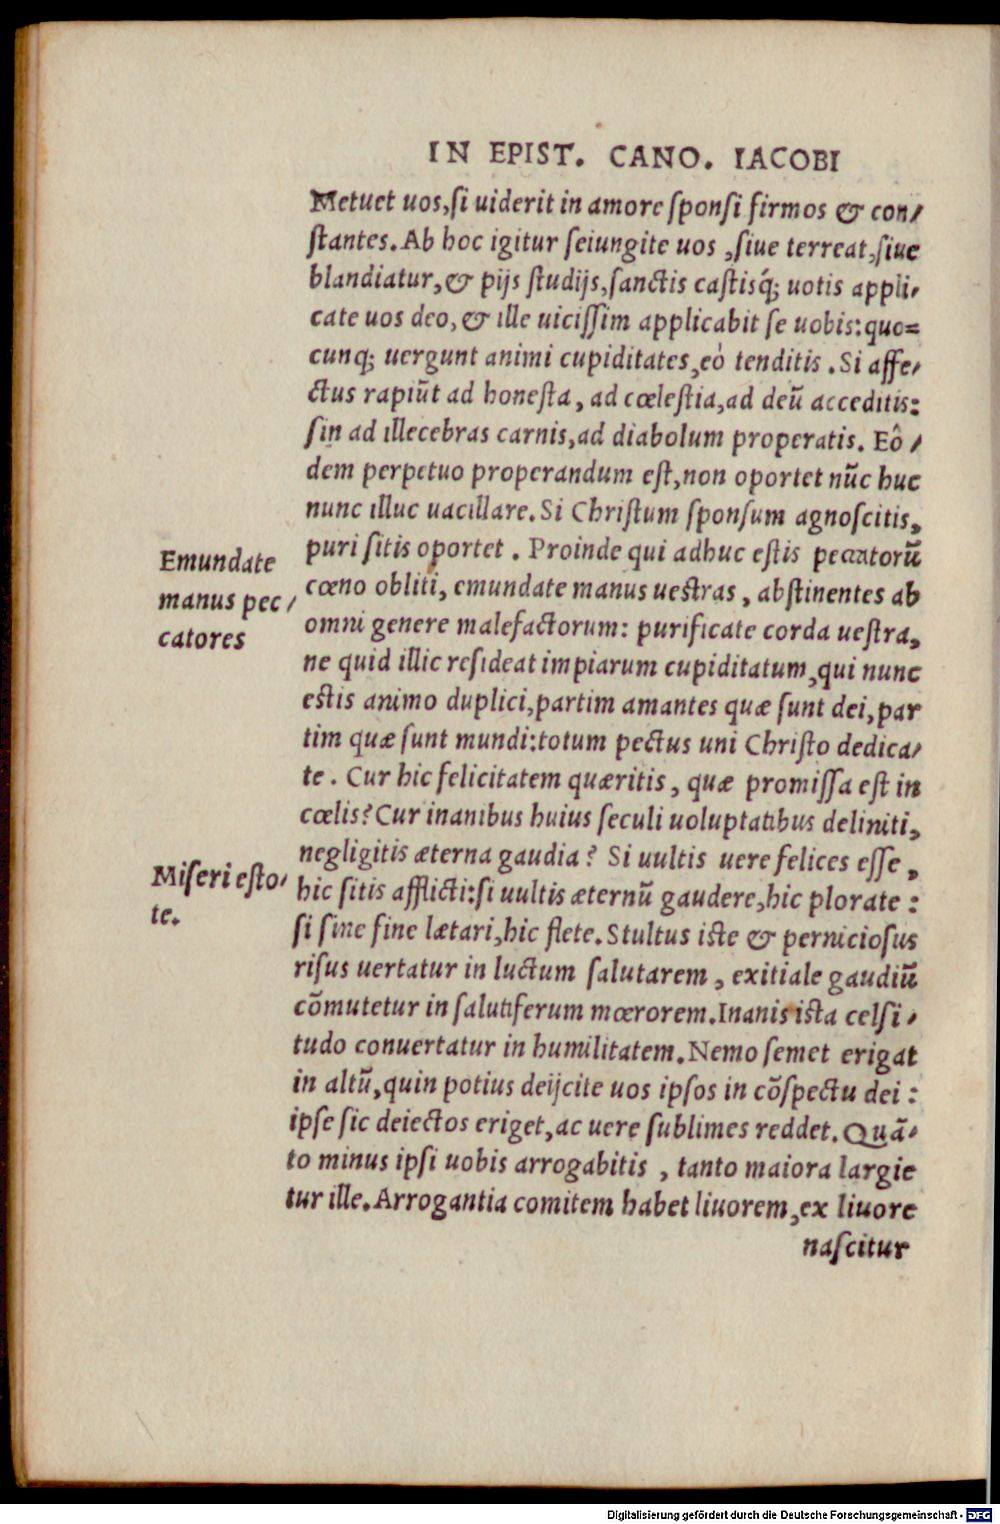 IN EPIST. CANO. IACOBI
Metuet uos, ſi uiderit in amore ſponſi firmos & con/
ſtantes. Ab hoc igitur ſeiungite uos, ſiue terreat, ſiue
blandiatur, & pijs ſtudijs, ſanctis caſtisq́; uotis appli/
cate uos deo, & ille uiciſſim applicabit ſe uobis: quo=
cunq; uergunt animi cupiditates, eò tenditis. Si affe/
ctus rapiūt ad honeſta, ad cœleſtia, ad deū acceditis:
ſin ad illecebras carnis, ad diabolum properatis. Eô/
dem perpetuo properandum eſt, non oportet nūc huc
nunc illuc uacillare. Si Chriſtum ſponſum agnoſcitis,
puri ſitis oportet. Proinde qui adhuc eſtis peccatorū
cœno obliti, emundate manus ueſtras, abſtinentes ab
omni genere malefactorum: purificate corda ueſtra,
ne quid illic reſideat impiarum cupiditatum, qui nunc
eſtis animo duplici, partim amantes quæ ſunt dei, par
tim quæ ſunt mundi: totum pectus uni Chriſto dedica/
te. Cur hic felicitatem quæritis, quæ promiſſa eſt in
cœlis? Cur inanibus huius ſeculi uoluptatibus deliniti,
negligitis æterna gaudia? Si uultis uere felices eſſe,
hic ſitis afflicti: ſi uultis æternū gaudere, hic plorate:
ſi ſine fine lætari, hic flete. Stultus iſte & pernicioſus
riſus uertatur in luctum ſalutarem, exitiale gaudiū
cōmutetur in ſalutiferum mœrorem. Inanis iſta celſi/
tudo conuertatur in humilitatem. Nemo ſemet erigat
in altū, quin potius deijcite uos ipſos in cōſpectu dei:
ipſe ſic deiectos eriget, ac uere ſublimes reddet. Quā/
to minus ipſi uobis arrogabitis, tanto maiora largie
tur ille. Arrogantia comitem habet liuorem, ex liuore
naſcitur
Emundate
manus pec/
catores
Miſeri eſto/
te.
Digitalisierung gefördert durch die Deutsche Forschungsgemeinschaft - DFG